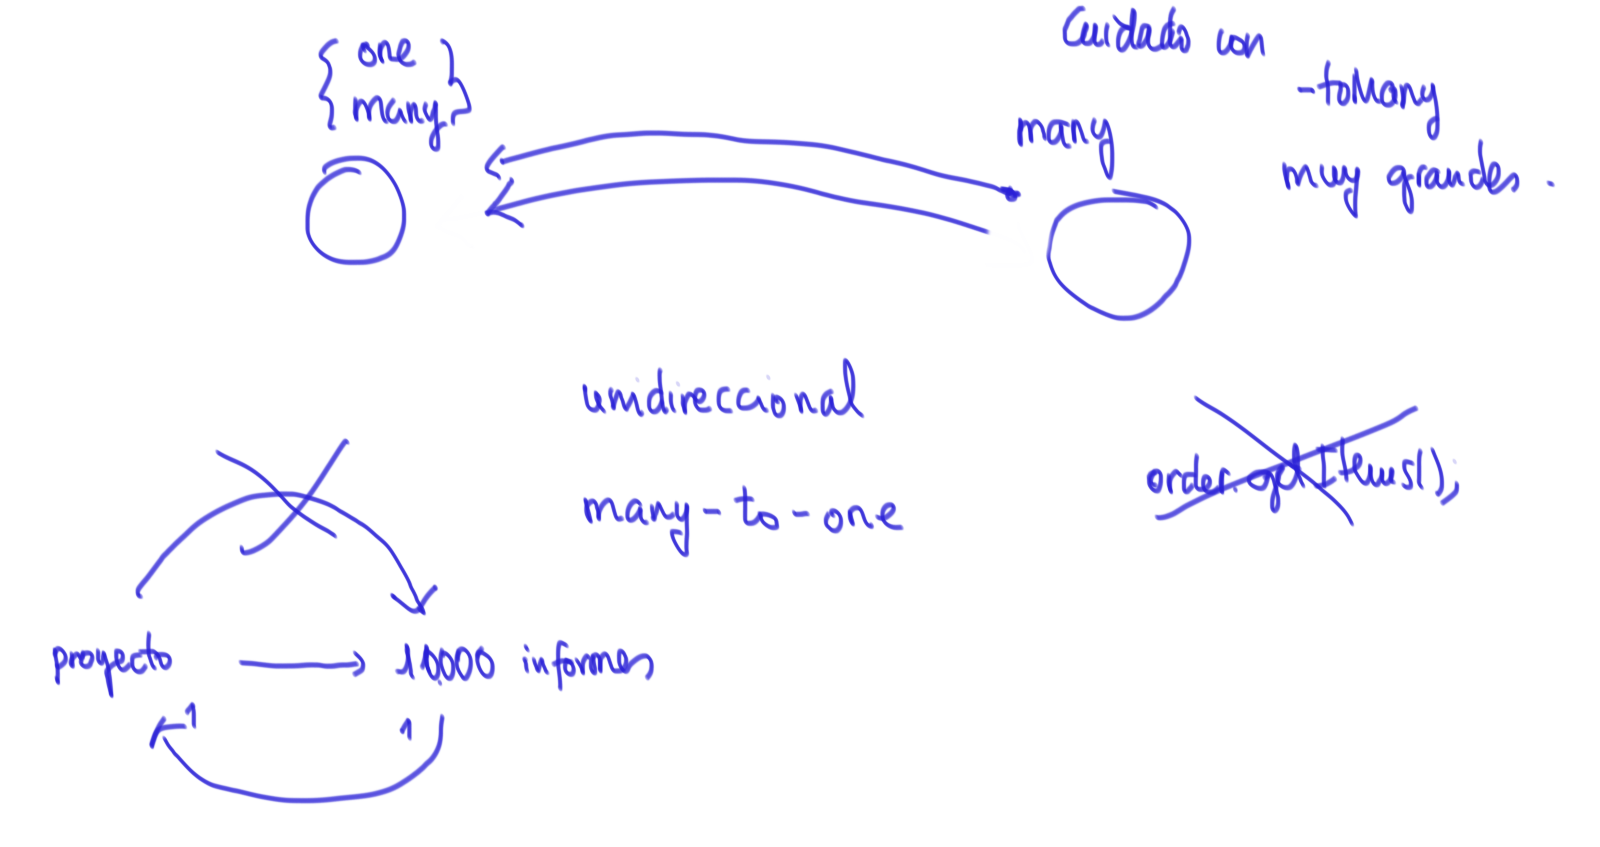 { one }
{ many }
many
Cuidado con
-toMany
muy grandes.
unidireccional
many-to-one
order.getItems();
proyecto → 10000 informes
1
1